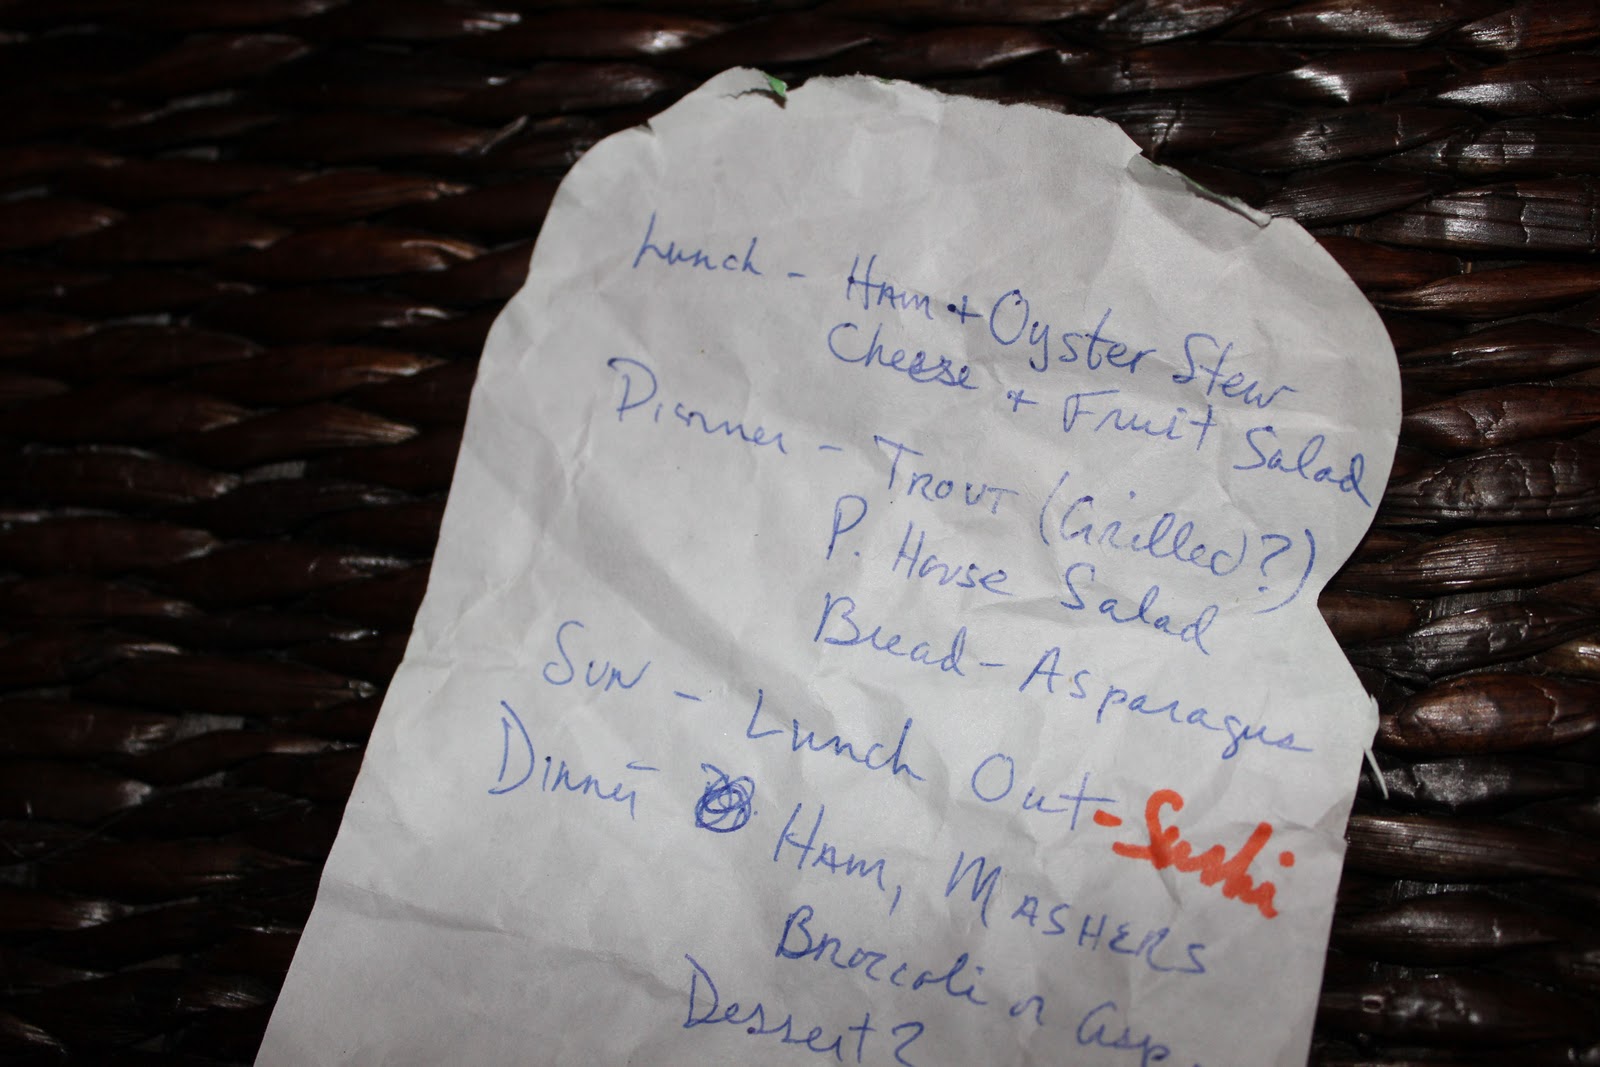 Lunch - Ham + Oyster Stew
Cheese + Fruit Salad
Dinner - Trout (Grilled?)
P. House Salad
Bread - Asparagus
Sun - Lunch Out - Sushi
Dinner Ham, Mashers
Broccoli or Asp.
Dessert?